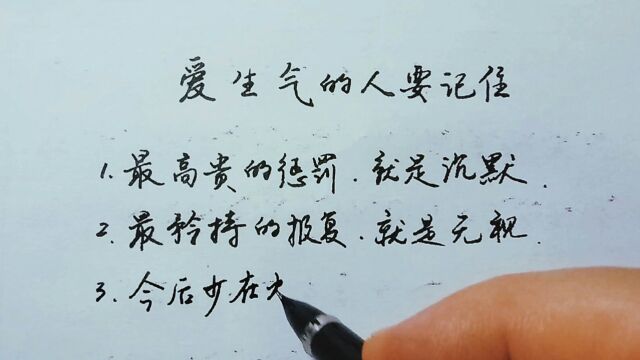 爱生气的人要记住
1.最高贵的惩罚.就是沉默.
2.最矜持的报复.就是无视.
3.今后少在